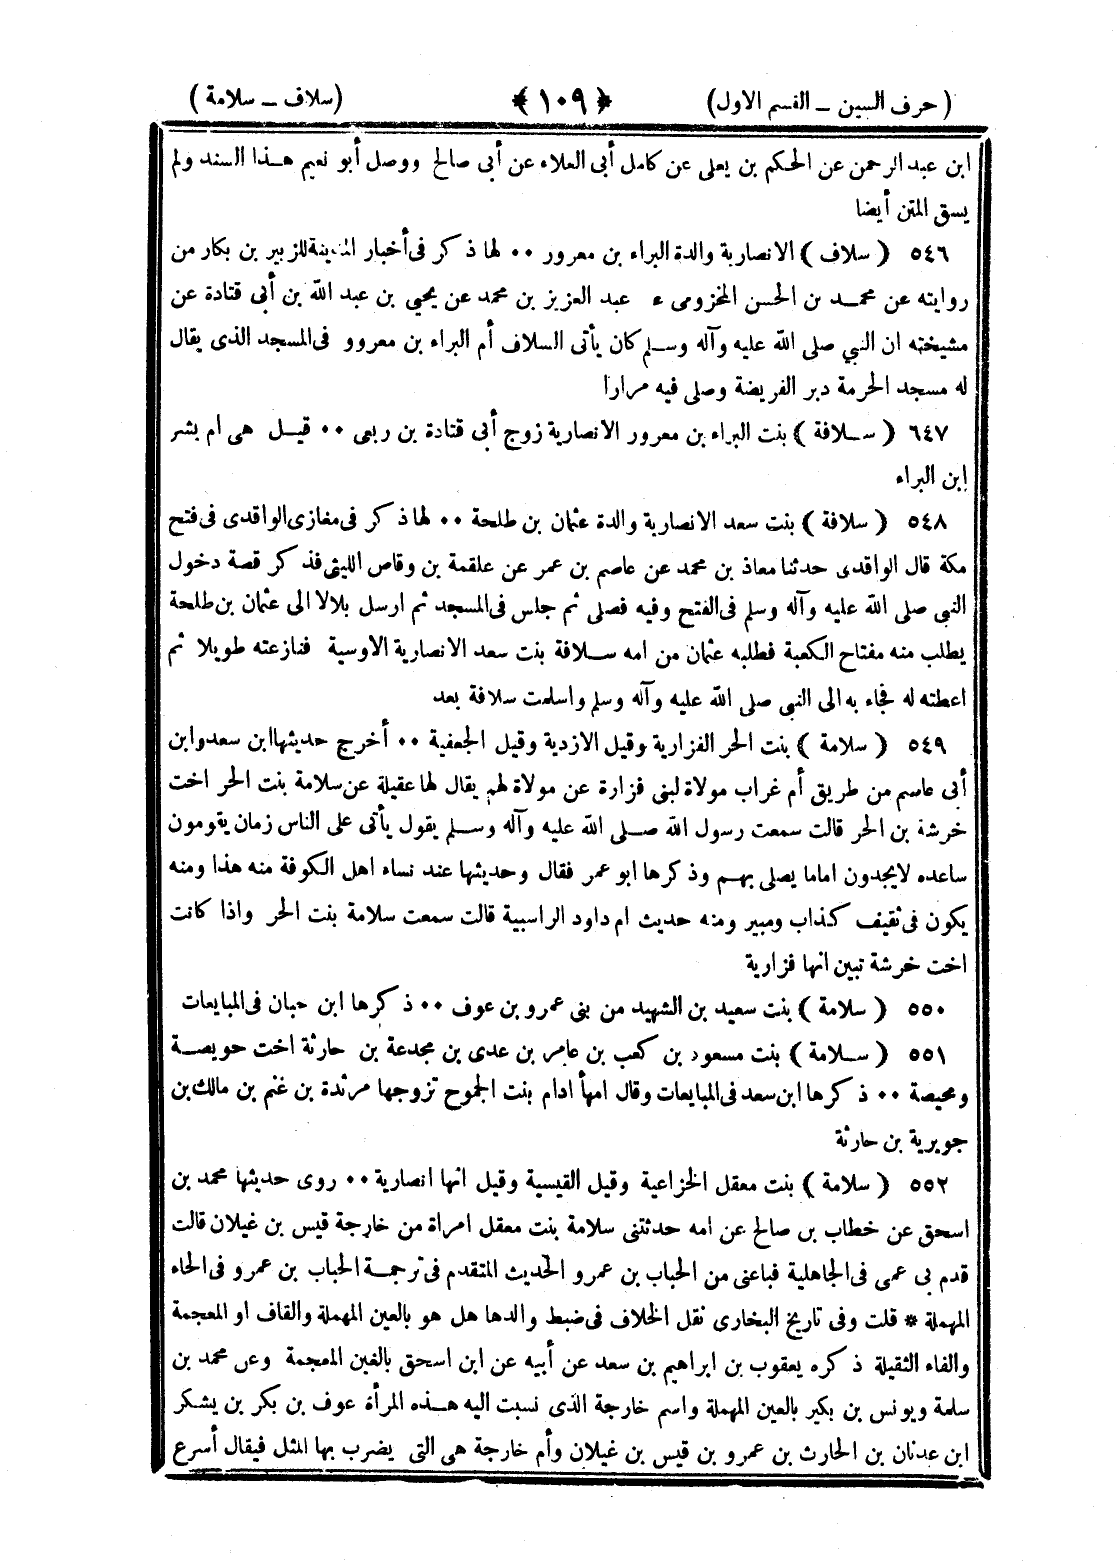 ( حرف السين – القسم الاول) ﴿١٠٩﴾ (سلاف – سلامة)
ابن عبد الرحمن عن الحكم بن يعلى عن كامل أبى العلاء عن أبى صالح ووصل أبو نعيم هذا السند ولم
يسق المتن أيضا
٥٤٦ ( سلاف ) الانصارية والدة البراء بن معرور ٠٠ لها ذكر فى أخبار المدينة للزبير بن بكار من
روايته عن محمد بن الحسن المخزومى ء عبد العزيز بن محمد عن يحيى بن عبد الله بن أبى قتادة عن
مشيخته ان النبي صلى الله عليه وآله وسلم كان يأتى السلاف أم البراء بن معروو فى المسجد الذى يقال
له مسجد الحرمة دبر الفريضة وصلى فيه مرارا
٦٤٧ ( سلافة ) بنت البراء بن معرور الانصارية زوج أبى قتادة بن ربعى ٠٠ قيل هى ام بشر
ابن البراء
٥٤٨ ( سلافة ) بنت سعد الانصارية والدة عثمان بن طلحة ٠٠ لها ذكر فى مغازى الواقدى فى فتح
مكة قال الواقدى حدثنا معاذ بن محمد عن عاصم بن عمر عن علقمة بن وقاص الليثى فذكر قصة دخول
النبى صلى الله عليه وآله وسلم فى الفتح وفيه فصلى ثم جلس فى المسجد ثم ارسل بلالا الى عثمان بن طلحة
يطلب منه مفتاح الكعبة فطلبه عثمان من امه سلافة بنت سعد الانصارية الاوسية فنازعته طويلا ثم
اعطته له فجاء به الى النبى صلى الله عليه وآله وسلم واسلمت سلافة بعد
٥٤٩ ( سلامة ) بنت الحر الفزارية وقيل الازدية وقيل الجعفية ٠٠ أخرج حديثها ابن سعد وابن
أبى عاصم من طريق أم غراب مولاة لبنى فزارة عن مولاة لهم يقال لها عقيلة عن سلامة بنت الحر اخت
خرشة بن الحر قالت سمعت رسول الله صلى الله عليه وآله وسلم يقول يأتى على الناس زمان يقومون
ساعده لايجدون اماما يصلى بهم وذكرها ابو عمر فقال وحديثها عند نساء اهل الكوفة منه هذا ومنه
يكون فى ثقيف كذاب ومبير ومنه حديث ام داود الراسبية قالت سمعت سلامة بنت الحر واذا كانت
اخت خرشة تبين انها فزارية
٥٥٠ ( سلامة ) بنت سعيد بن الشهيد من بنى عمرو بن عوف ٠٠ ذكرها ابن حبان فى المبايعات
٥٥١ ( سلامة ) بنت مسعود بن كعب بن عامر بن عدى بن مجدعة بن حارثة اخت حويصة
ومحيصة ٠٠ ذكرها ابن سعد فى المبايعات وقال امها ادام بنت الجموح تزوجها مرثدة بن غنم بن مالك بن
جويرية بن حارثة
٥٥٢ ( سلامة ) بنت معقل الخزاعية وقيل القيسية وقيل انها انصارية ٠٠ روى حديثها محمد بن
اسحق عن خطاب بن صالح عن امه حدثتنى سلامة بنت معقل امراة من خارجة قيس بن غيلان قالت
قدم بى عمى فى الجاهلية فباعنى من الحباب بن عمرو الحديث المتقدم فى ترجمة الحباب بن عمرو فى الحاء
المهملة * قلت وفى تاريخ البخارى نقل الخلاف فى ضبط والدها هل هو بالعين المهملة والقاف او المعجمة
والفاء الثقيلة ذكره يعقوب بن ابراهيم بن سعد عن أبيه عن ابن اسحق بالغين المعجمة وعن محمد بن
سلمة ويونس بن بكير بالعين المهملة واسم خارجة الذى نسبت اليه هذه المرأة عوف بن بكر بن يشكر
ابن عدنان بن الحارث بن عمرو بن قيس بن غيلان وأم خارجة هى التى يضرب بها المثل فيقال أسرع